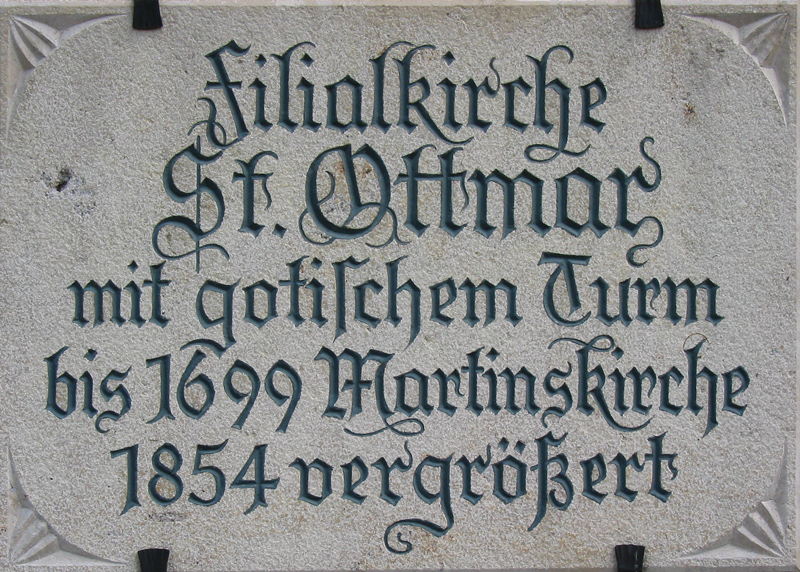 Filialkirche
St. Ottmar
mit gotiſchem Turm
bis 1699 Martinskirche
1854 vergrößert